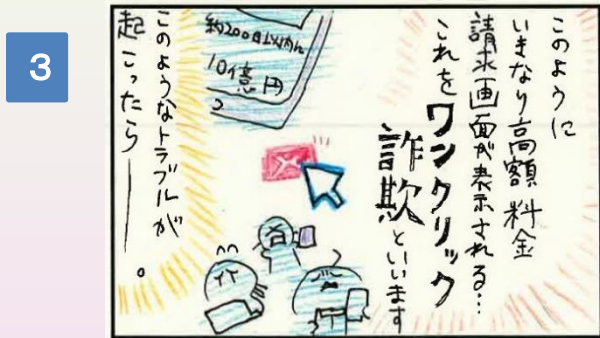 3
このように
いきなり高額料金
請求画面が表示される…
これをワンクリック
詐欺といいます
10億円
このようなトラブルが
起こったら――。